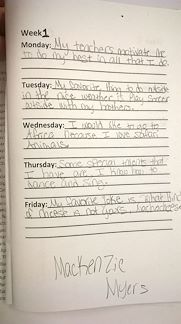 Week 1
Monday: My teachers motivate me
to do my best in all that I do.
Tuesday: My favorite thing to do outside
in the nice weather is play soccer
outside with my brothers.
Wednesday: I would like to go to
Africa because I love safari
Animals.
Thursday: Some special talents that
I have are I know how to
dance and sing.
Friday: My favorite joke is "What kind
of cheese is not yours, Nachocheese
Mackenzie
Myers